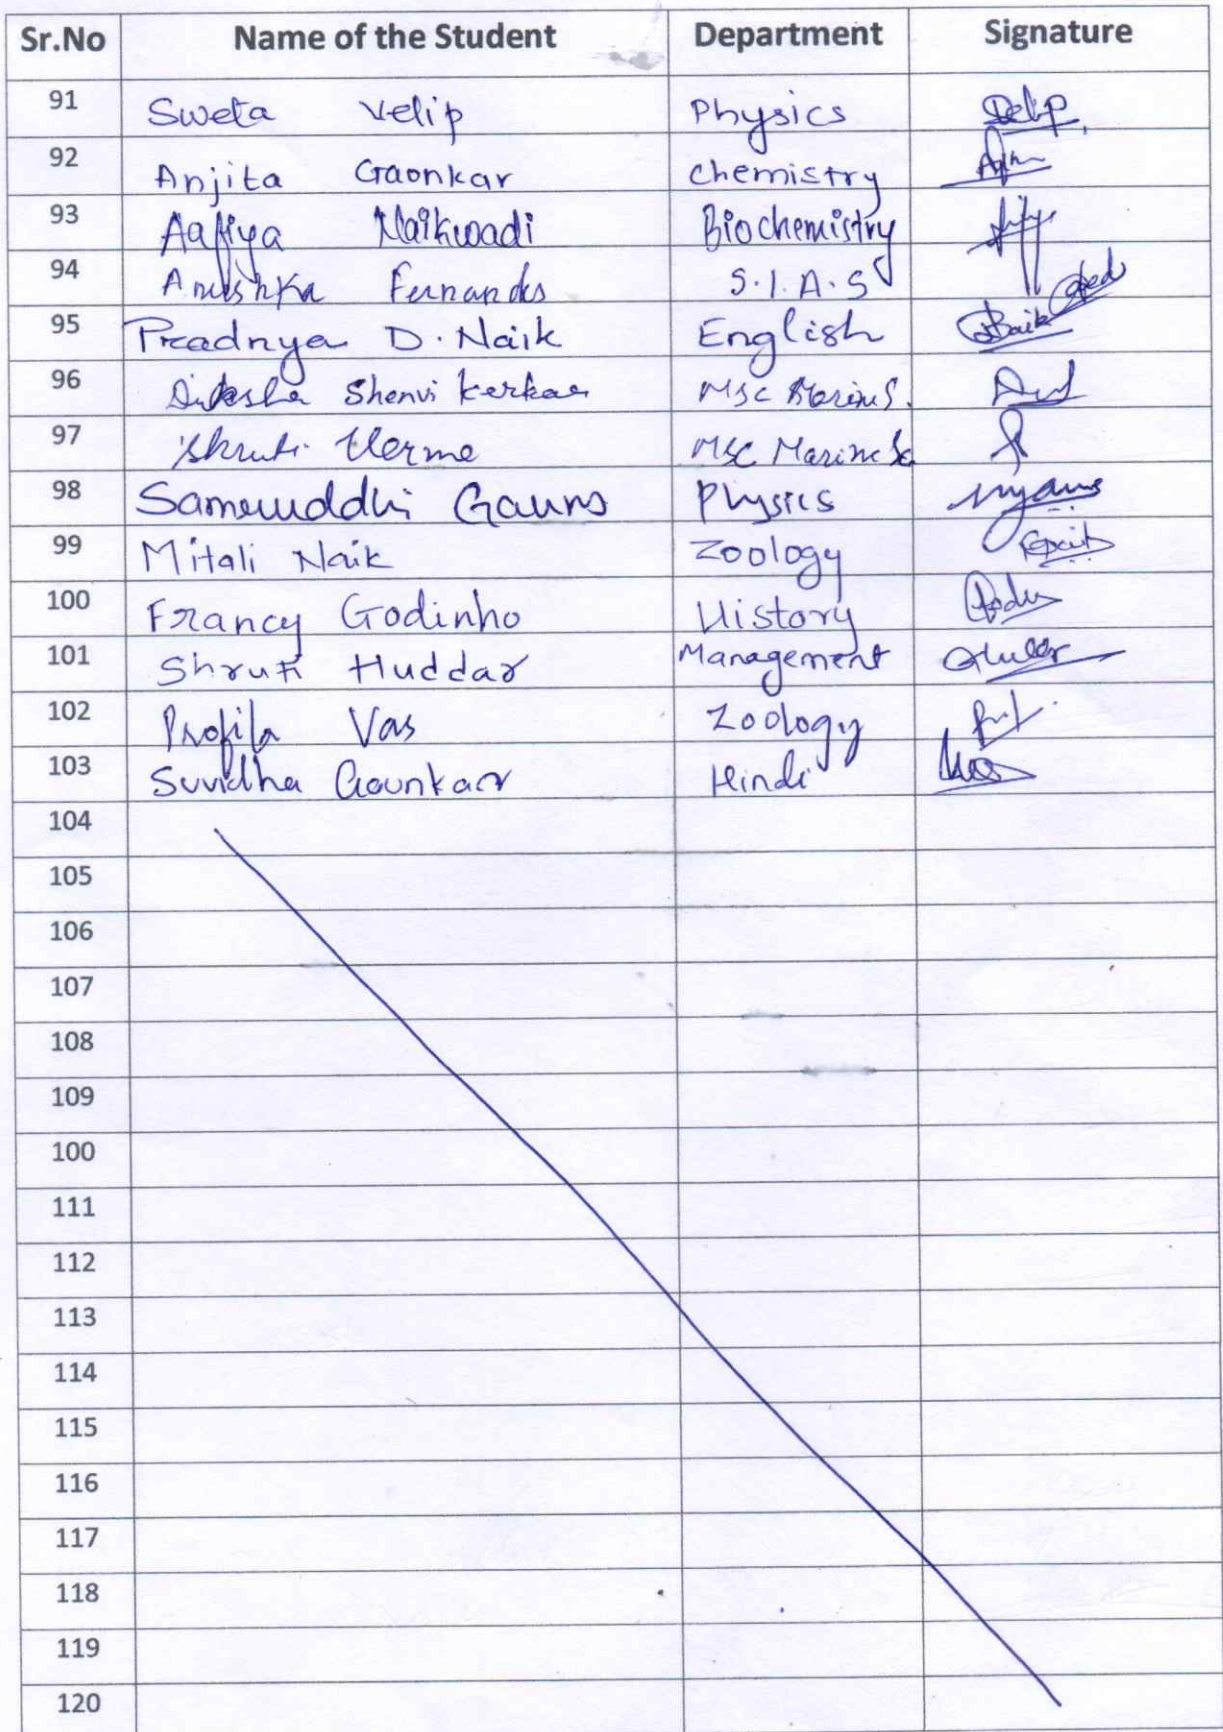 Sr.No Name of the Student Department Signature
91 Sweta Velip Physics Velip
92 Anjita Gaonkar Chemistry
93 Aafiya Naikwadi Biochemistry
94 Anushka Fernandes S.I.A.S
95 Pradnya D. Naik English
96 Diksha Shenvi Kerkar MSc Marine S.
97 Shruti Verma MSC Marine Sc
98 Samruddhi Gauns Physics
99 Mitali Naik Zoology
100 Francy Godinho History
101 Shruti Huddar Management
102 Profila Vas Zoology
103 Suvidha Gaunkar Hindi
104
105
106
107
108
109
100
111
112
113
114
115
116
117
118
119
120